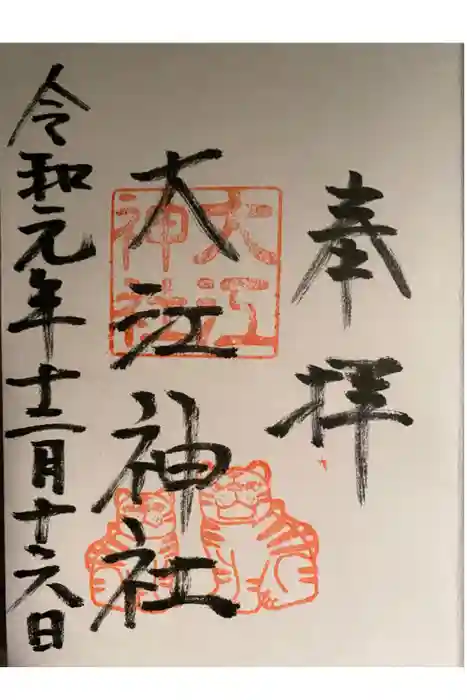 奉拝
大江神社
大江
神社
令和元年十二月十六日